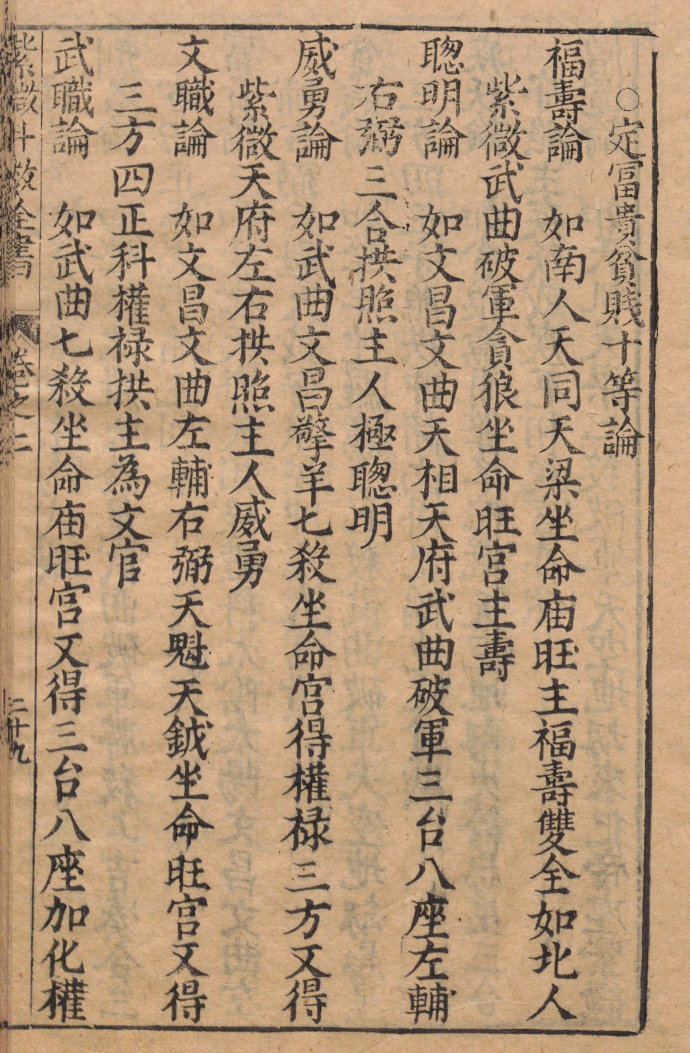 ○定富貴貧賤十等論
福壽論　如南人天同天梁坐命庙旺主福壽雙全如北人
紫微武曲破軍貪狼坐命旺宮主壽
聰明論　如文昌文曲天相天府武曲破軍三台八座左輔
右弼三合拱照主人極聰明
威勇論　如武曲文昌擎羊七殺坐命宮得權祿三方又得
紫微天府左右拱照主人威勇
文職論　如文昌文曲左輔右弼天魁天鉞坐命旺宮又得
三方四正科權祿拱主為文官
武職論　如武曲七殺坐命庙旺宮又得三台八座加化權
紫微斗数全書　卷之二　二十九